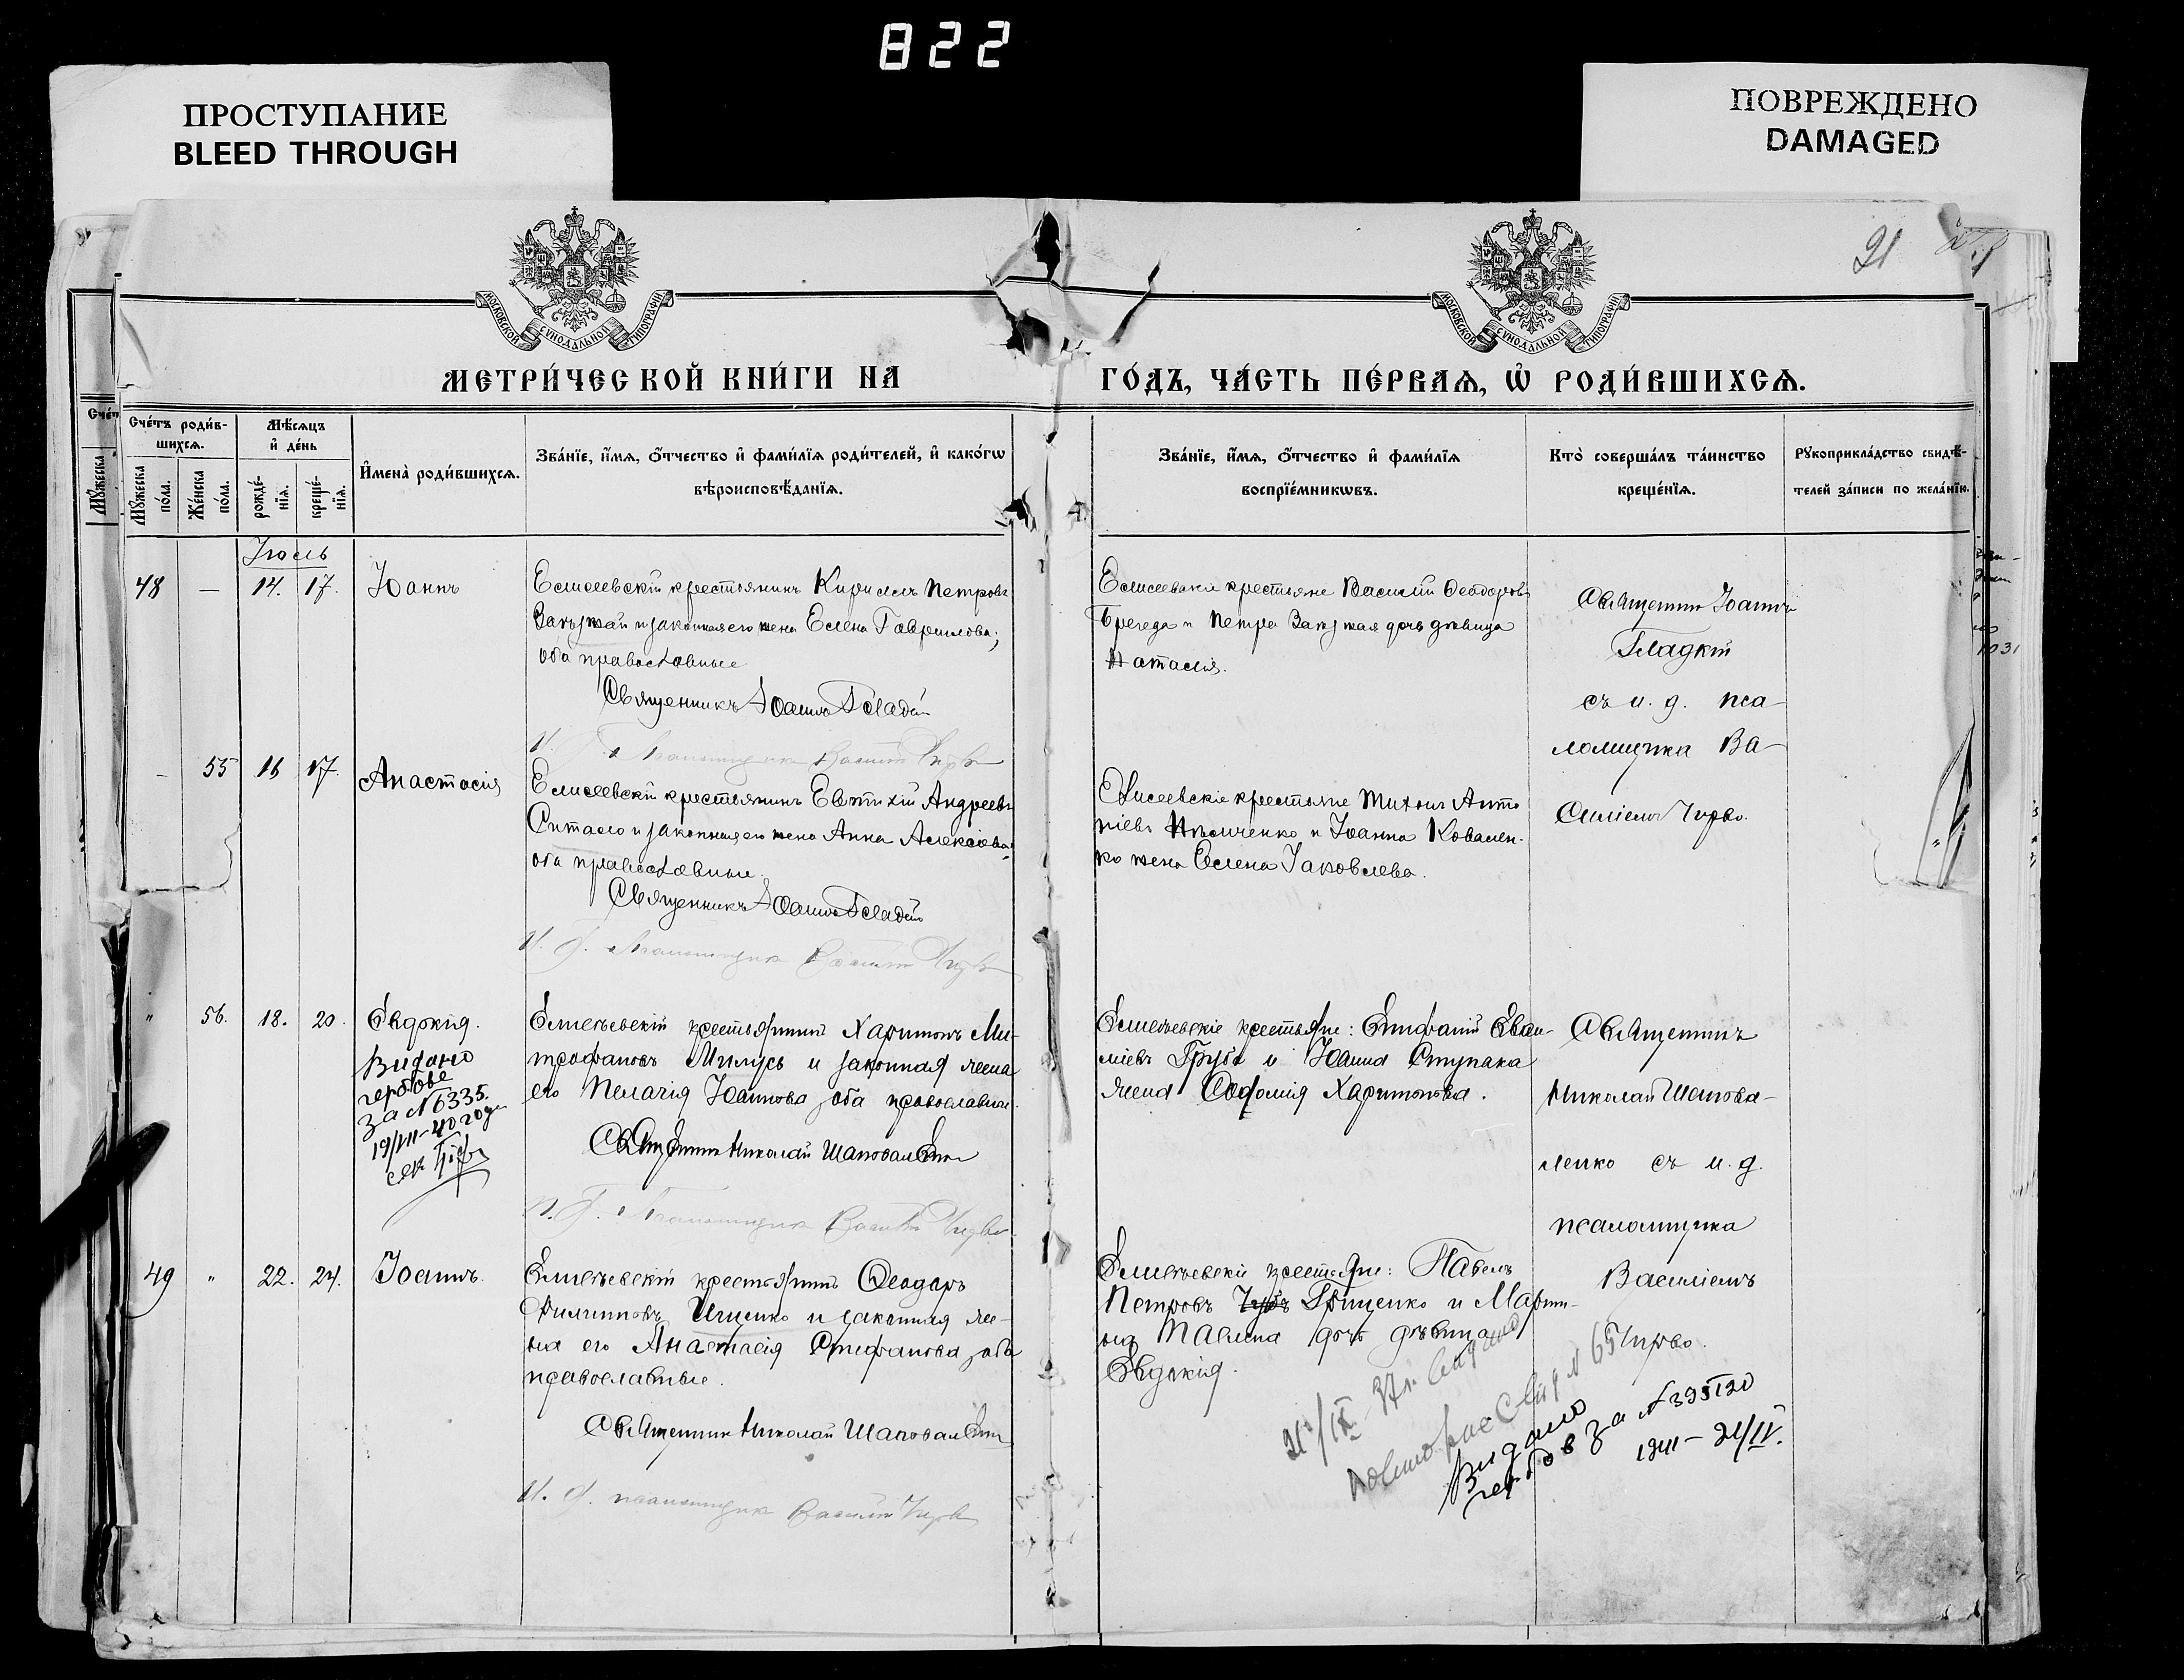 822
ПРОСТУПАНИЕ
BLEED THROUGH
ПОВРЕЖДЕНО
DAMAGED
МОСКОВСКОЙ СѴНОДАЛЬНОЙ ТИПОГРАФІИ
МОСКОВСКОЙ СѴНОДАЛЬНОЙ ТИПОГРАФІИ
21
МЕТРИ́ЧЕСКОЙ КНИ́ГИ НА
ГО́ДЪ, ЧА́СТЬ ПЕ́РВАѦ, Ѡ҆ РОДИ́ВШИХСѦ.
Сче́тъ роди́в-
шихсѧ.
Мꙋ́жеска
по́ла.
Же́нска
по́ла.
Мѣ́сѧцъ
и҆ де́нь
рожде́-
нїѧ.
креще́-
нїѧ.
И҆мена̀ роди́вшихсѧ.
Зва́нїе, и҆́мѧ, ѻ҆́тчество и҆ фами́лїѧ роди́телей, и҆ како́гѡ
вѣроисповѣ́данїѧ.
Зва́нїе, и҆́мѧ, ѻ҆́тчество и҆ фами́лїѧ
воспрїе́мникѡвъ.
Кто̀ соверша́лъ та́инство
креще́нїѧ.
Рꙋкоприкла́дство свидѣ́-
телей за́писи по жела́нїю.
Іюль
48 — 14. 17. Іоаннъ
Елисеевскій крестьянинъ Кириллъ Петровъ
и законная его жена Елена Гаврилова;
оба православные
Священникъ Іоаннъ Гладкій
Елисеевскіе крестьяне Василій Ѳеодоровъ
Брегеда и Петра дочь дѣвица
Наталія.
Священникъ Іоаннъ
Гладкій
съ и. д. пса-
ломщика Ва-
силіемъ Чирво.
- 55 16 17. Анастасія
Елисеевскій крестьянинъ Евтихій Андреевъ
Ситало и законная его жена Анна Алексіева
оба православные.
Священникъ Іоаннъ Гладкій
И. д. псаломщика Василій Чирво
Елисеевскіе крестьяне Тихонъ Анто-
ніевъ Ильченко и Іоанна Ковален-
ко жена Елена Іаковлева.
" 56. 18. 20. Евдокія.
Видано
гербове
за № 6335.
19/VII-40 года
Елисеевскій крестьянинъ Харитонъ Ми-
трофановъ Милусь и законная жена
его Пелагія Іоаннова, оба православные.
Священникъ Николай Шаповаленко
И. д. псаломщика Василій Чирво
Елисеевскіе крестьяне: Епифаній
Груба и Іоанна Ступака
жена Соломія Харитонова.
Священникъ
Николай Шапова-
ленко съ и. д.
псаломщика
Василіемъ
Чирво.
49 " 22. 24. Іоаннъ.
Елисеевскій крестьянинъ Ѳеодоръ
Филипповъ Ищенко и законная же-
на его Анастасія Стефанова, оба
православные.
Священникъ Николай Шаповаленко
И. д. псаломщика Василій Чирво
Елисеевскіе крестьяне: Павелъ
Петровъ Грищенко и
дочь дѣвица
Евдокія.
Видано
гербов за № 395120
1941 - 21/IV.